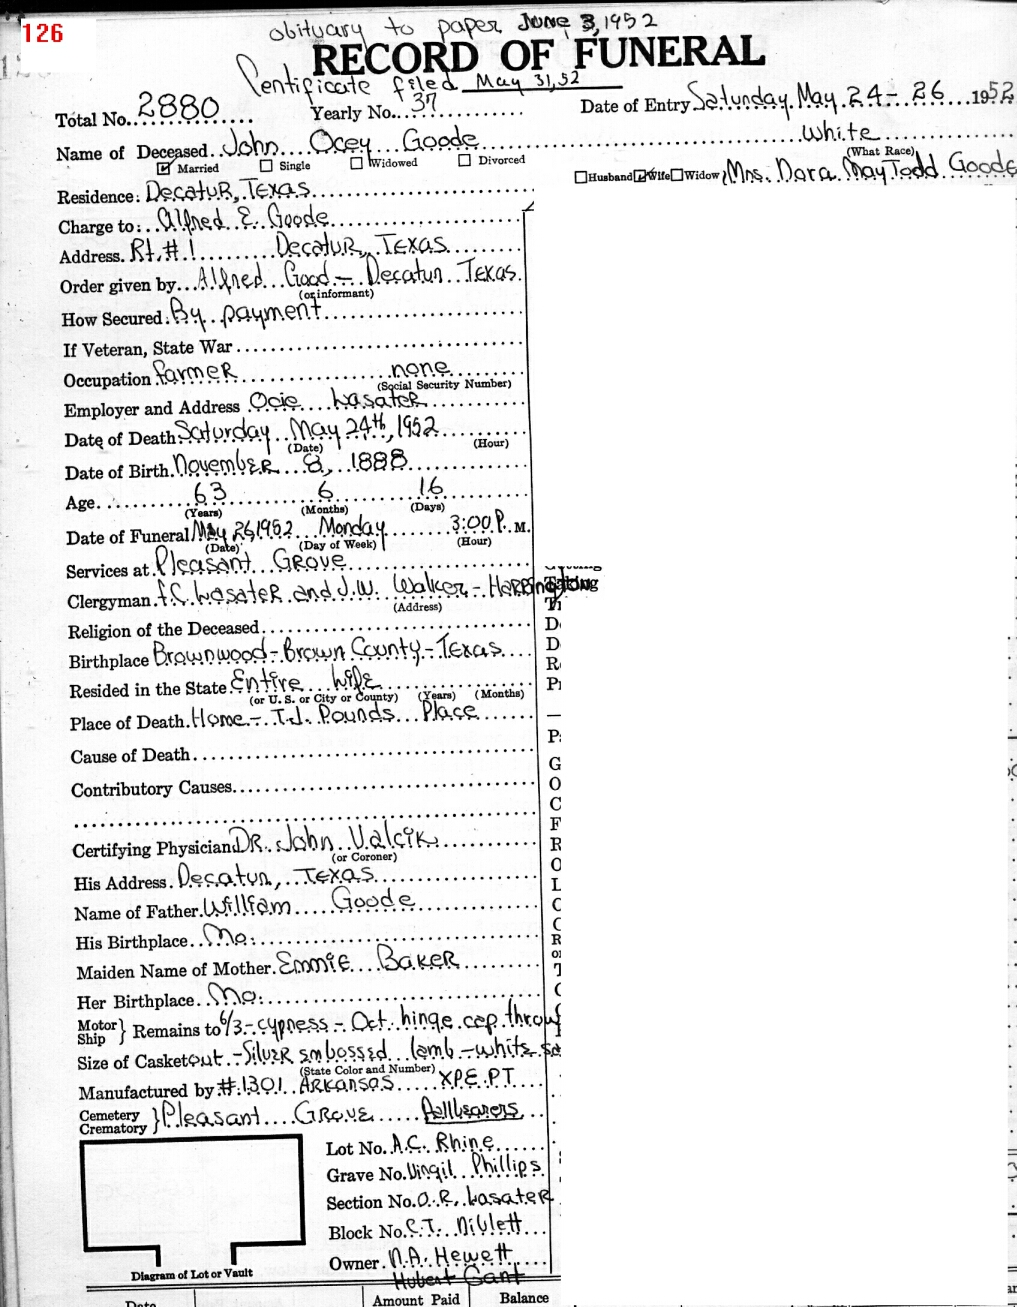 126
obituary to paper June 3, 1952
RECORD OF FUNERAL
Certificate filed May 31, 52
Total No. 2880 Yearly No. 37 Date of Entry Saturday May 24 - 26 1952
Name of Deceased John Ocey Goode White
Married Single Widowed Divorced (What Race)
Husband Wife Widow Mrs. Dora May Todd Goode
Residence: Decatur, Texas
Charge to: Alfred E. Goode
Address. Rt. # 1 Decatur, Texas
Order given by Alfred Good - Decatur Texas
(or informant)
How Secured. By payment
If Veteran, State War
Occupation farmer none
(Social Security Number)
Employer and Address Ocie Lasater
Date of Death Saturday May 24th, 1952
(Date) (Hour)
Date of Birth. November 8, 1888
Age. 63 6 16
(Years) (Months) (Days)
Date of Funeral May 26, 1952 Monday 3:00 P. M.
(Date) (Day of Week) (Hour)
Services at. Pleasant Grove
Clergyman. F.C. Lasater and J.W. Walker - Harrington
(Address)
Religion of the Deceased
Birthplace Brownwood - Brown County - Texas
Resided in the State Entire Life
(or U. S. or City or County) (Years) (Months)
Place of Death. Home - T.J. Pounds Place
Cause of Death
Contributory Causes
Certifying Physician DR. John Valcik
(or Coroner)
His Address. Decatur, Texas
Name of Father. William Goode
His Birthplace. Mo.
Maiden Name of Mother. Emmie Baker
Her Birthplace. Mo.
Motor Ship } Remains to 6/3 - cypress - Oct. hinge cap throw
Size of Casket out - Silver embossed lamb - white
(State Color and Number)
Manufactured by # 1301 Arkansas XPE PT
Cemetery Crematory } Pleasant Grove Pallbearers
Lot No. A.C. Rhine
Grave No. Virgil Phillips
Section No. O.R. Lasater
Block No. C.T. Niblett
Owner. N.A. Hewett
Diagram of Lot or Vault
Hubert Gant
Date Amount Paid Balance